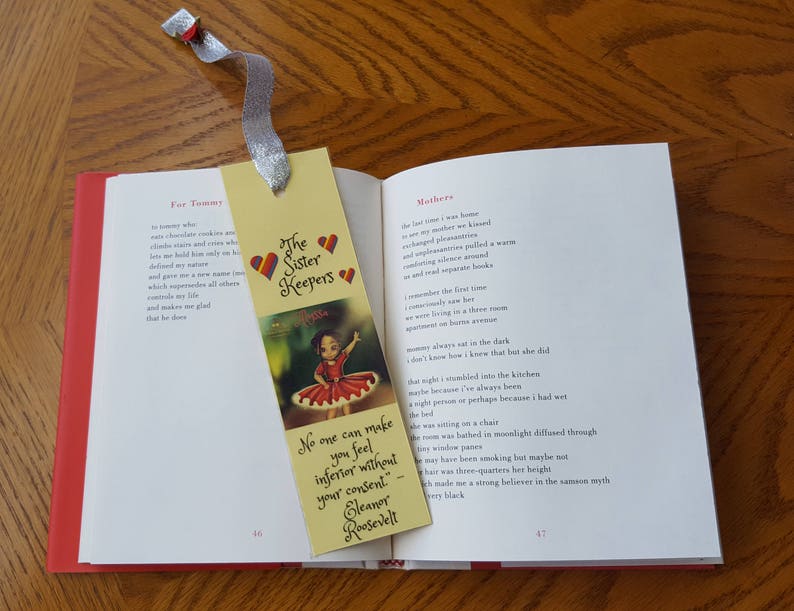 For Tommy
to tommy who:
eats chocolate cookies and
climbs stairs and cries who
lets me hold him only on his
defined my nature
and gave me a new name (mo
which supersedes all others
controls my life
and makes me glad
that he does
46
The
Sister
Keepers
Alyssa
No one can make
you feel
inferior without
your consent." –
Eleanor
Roosevelt
Mothers
the last time i was home
to see my mother we kissed
exchanged pleasantries
and unpleasantries pulled a warm
comforting silence around
us and read separate books
i remember the first time
i consciously saw her
we were living in a three room
apartment on burns avenue
mommy always sat in the dark
i don't know how i knew that but she did
that night i stumbled into the kitchen
maybe because i've always been
a night person or perhaps because i had wet
the bed
she was sitting on a chair
the room was bathed in moonlight diffused through
tiny window panes
she may have been smoking but maybe not
her hair was three-quarters her height
which made me a strong believer in the samson myth
very black
47